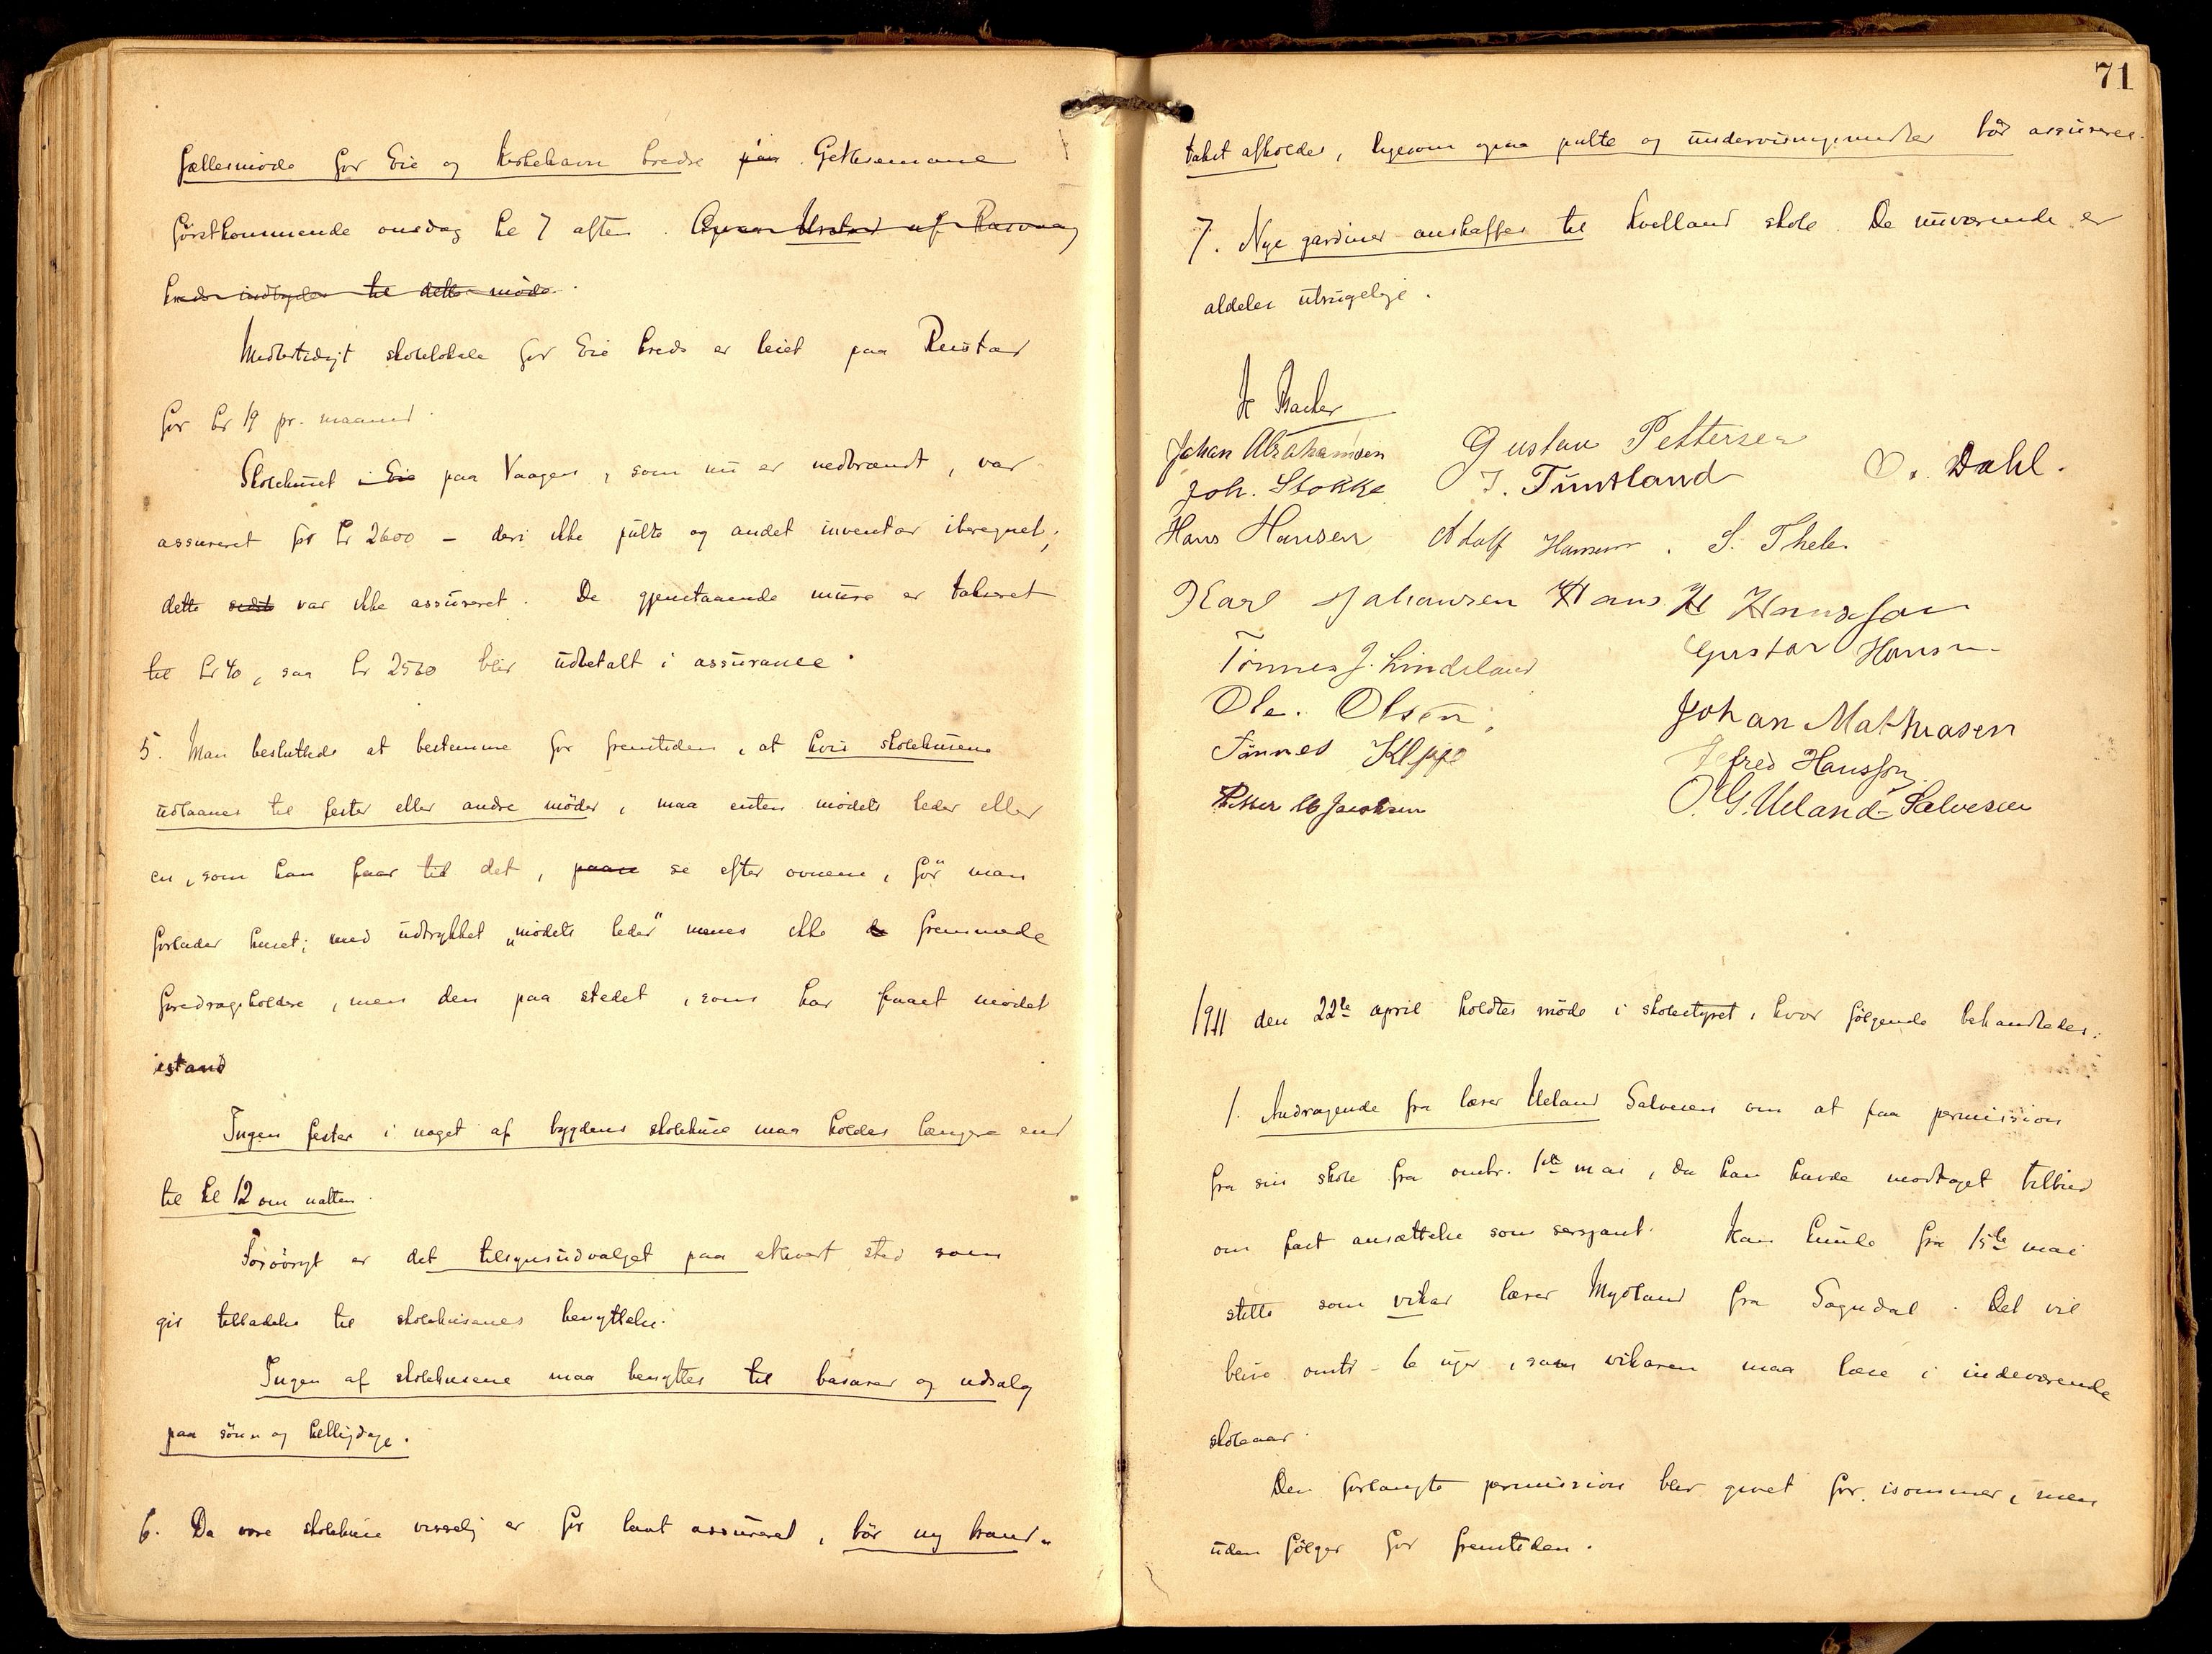 fællesmöde for Eie og Kirkehavn kredse paa Gethsemane
førstkommende onsdag kl 7 aften. Ogsaa Urstad af Rasvaag
kreds indbydes til dette møde.
Midlertidigt skolelokale for Eie kreds er leiet paa Restad
for kr 19 pr. maaned.
Skolehuset i Eie paa Vaagen, som nu er nedbrændt, var
assureret for kr 2600 – deri ikke pulte og andet inventar iberegnet;
dette sidste var ikke assureret. De gjenstaaende mure er takseret
til kr 40, saa kr 2560 blir udbetalt i assurance.
5. Man besluttede at bestemme for fremtiden, at hvis skolehusene
udlaanes til fester eller andre möder, maa enten mödets leder eller
en, som han faar til det, paase se efter ovnene, før man
forlader huset; med udtrykket „mödets leder" menes ikke de fremmede
foredragsholdere, men den paa stedet, som har faaet mödet
istand
Ingen fester i noget af bygdens skolehuse maa holdes længere end
til kl 12 om natten.
Forövrigt er det tilsynsudvalget paa ethvert sted som
gir tilladelse til skolehusenes benyttelse.
Ingen af skolehusene maa benyttes til basarer og udsalg
paa sönn og helligdage.
6. Da vore skolehuse visselig er for lavt assureret, bör ny brand-
71
takst afholdes, ligesom ogsaa pulte og undervisningsmidler bör assureres.
7. Nye gardiner anskaffes til Kvelland skole. De nuværende er
aldeles ubrugelige.
Johan Abrahamsen Gustav Pettersen
Joh. Stokke J. Tuntland O. Dahl.
Hans Hansen Adolf Hansen. S. Thele
Karl Johansen Hans H Hanssen
Tönnes J. Lindeland Gustav Hansen
Ole. Olsen. Johan Mathiasen
Tönnes Kleppe Hansson
Petter Jacobsen O. G. Ueland-Salvesen
1911 den 22de april holdtes möde i skolestyret, hvor fölgende behandledes:
1. Andragende fra lærer Ueland Salvesen om at faa permission
fra sin skole fra omtr. 1ste mai, da han havde modtaget tilbud
om fast ansættelse som sersjant. Han kunde fra 15de mai
stille som vikar lærer Mydland fra Sogndal. Det vil
blive omtr. 6 uger, som vikaren maa læse i indeværende
skoleaar.
Den forlangte permission blev givet for isommer, men
uden fölger for fremtiden.